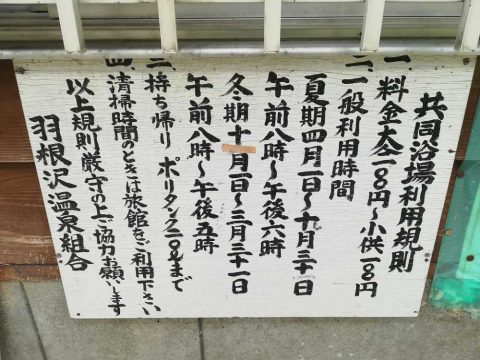 共同浴場利用規則
一、料金大人二〇〇円～小供一〇〇円
二、一般利用時間
夏期四月一日～十月三十一日
午前八時～午後六時
冬期十一月一日～三月三十一日
午前八時～午後五時
三、持ち帰り ポリタンク二〇ℓまで
四、清掃時間のときは旅館をご利用下さい
以上規則厳守の上ご協力お願いします
羽根沢温泉組合